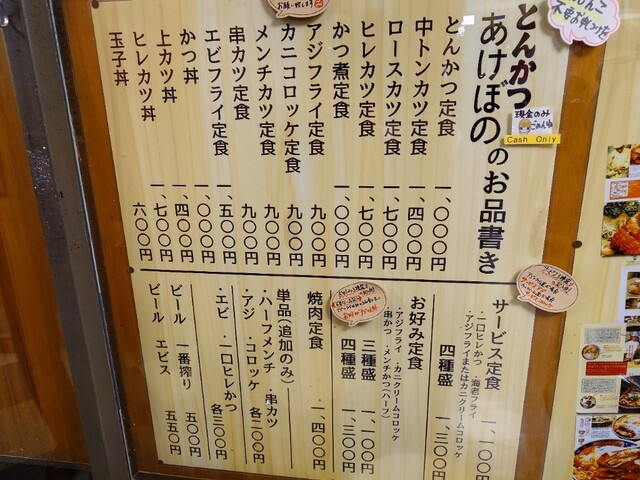 とんかつあけぼののお品書き
現金のみ
ごめんね
Cash Only
とんかつ定食 一、〇〇〇円
中トンカツ定食 一、四〇〇円
ロースカツ定食 一、七〇〇円
ヒレカツ定食 一、七〇〇円
かつ煮定食 一、〇〇〇円
アジフライ定食 九〇〇円
カニコロッケ定食 九〇〇円
メンチカツ定食 九〇〇円
串カツ定食 九〇〇円
エビフライ定食 一、五〇〇円
かつ丼 一、〇〇〇円
上カツ丼 一、四〇〇円
ヒレカツ丼 一、七〇〇円
玉子丼 六〇〇円
サービス定食 一、一〇〇円
・一口ヒレかつ ・海老フライ
・アジフライまたはカニクリームコロッケ
四種盛 一、三〇〇円
お好み定食
・アジフライ ・カニクリームコロッケ
・串かつ ・メンチかつ(ハーフ)
三種盛 一、一〇〇円
四種盛 一、三〇〇円
焼肉定食 一、四〇〇円
単品(追加のみ)
・ハーフメンチ ・串カツ
・アジ ・コロッケ 各二〇〇円
・エビ ・一口ヒレかつ 各三〇〇円
ビール 一番搾り 五五〇円
ビール エビス 五五〇円